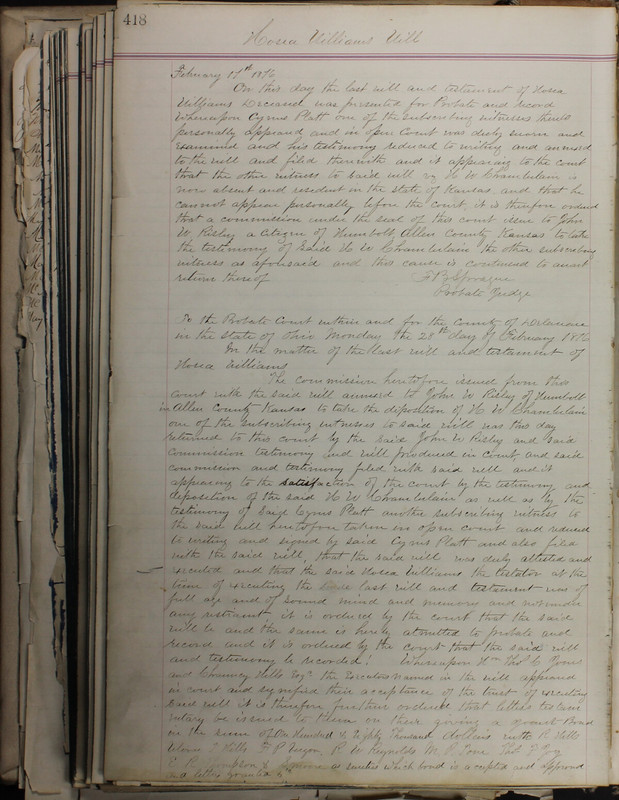 418
Hosea Williams Will
February 17th 1876
On this day the last will and testament of Hosea
Williams Deceased was presented for Probate and record
Whereupon Cyrus Platt one of the subscribing witnesses thereto
personally appeared and in open Court was duly sworn and
examined and his testimony reduced to writing and annexed
to the will and filed therewith and it appearing to the court
that the other witness to said will viz H W Chamberlain is
now absent and resident in the state of Kansas, and that he
cannot appear personally before the court, it is therefore ordered
that a commission under the seal of this court issue to John
W. Risley a citizen of Humbolt Allen County Kansas to take
the testimony of said H W Chamberlain the other subscribing
witness as aforesaid and this cause is continued to await
return thereof
F B Sprague
Probate Judge
To the Probate Court within and for the County of Delaware
in the state of Ohio Monday the 28th day of February 1876
In the matter of the last will and testament of
Hosea Williams
The commission heretofore issued from this
court with the said will annexed to John W Risley of Humbolt
in Allen County Kansas to take the deposition of H W Chamberlain
one of the subscribing witnesses to said will was this day
returned to this court by the said John W Risley and said
commission testimony and will produced in court, and said
commission and testimony filed with said will and it
appearing to the satisfaction of the court by the testimony and
deposition of the said H W Chamberlain as well as by the
testimony of said Cyrus Platt another subscribing witness to
the said will heretofore taken in open court and reduced
to writing and signed by said Cyrus Platt and also filed
with the said will, that the said will was duly attested and
executed and that the said Hosea Williams the testator at the
time of executing the last will and testament was of
full age and of sound mind and memory and not under
any restraint, it is ordered by the court that the said
will be and the same is hereby admitted to probate and
record and it is ordered by the court that the said will
and testimony be recorded! Whereupon Thos C Jones
and Chauncy Hills Esqrs the Executors named in the will appeared
in court and signified their acceptance of the trust of executing
said will it is therefore further ordered that letters testamen
tary be issued to them on their giving a Bond
in the sum of One Hundred & Eighty Thousand dollars with R Hills
Hills P W Reynolds
E R Thompson & as sureties which bond is accepted and approved
and letters granted